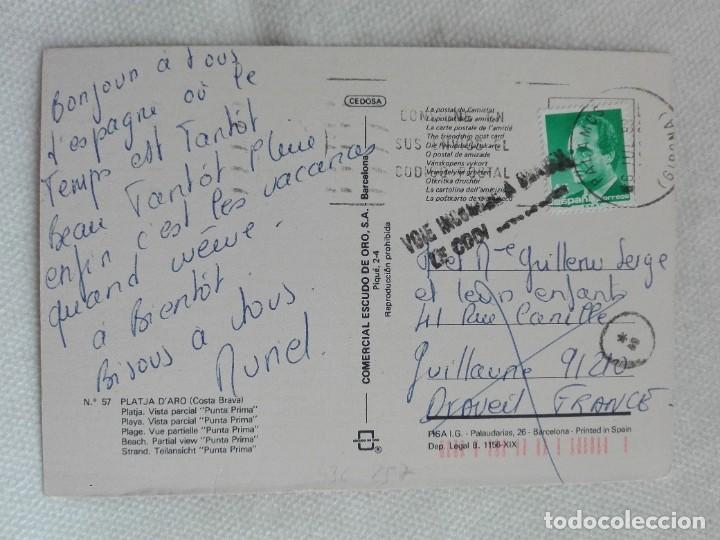 Bonjour à tous
d'espagne où le
Temps est Tantôt
Beau Tantôt pluie!
enfin c'est les vacances
quand même.
à Bientôt.
Bisous à tous.
Muriel.
N.° 57 PLATJA D'ARO (Costa Brava)
Platja. Vista parcial "Punta Prima"
Playa. Vista parcial "Punta Prima"
Plage. Vue partielle "Punta Prima"
Beach. Partial view "Punta Prima"
Strand. Teilansicht "Punta Prima"
CEDOSA
COMERCIAL ESCUDO DE ORO, S.A. Barcelona
Piqué, 2-4
Reproducción prohibida
®
La postal de l'amistat
La postal de la amistad
La carte postale de l'amitié
The friendship post card
Die Freundschaftskarte
O postal de amizade
Vänskapens vykort
La cartolina dell'amicizia
CON
SUS
CODIGO POSTAL
PALAMOS
(GIRONA)
España
correos
VOIE
LE CODE
et Mme Guillem Serge
et leurs enfants
41 Rue Camille
Guillaume 91210
Draveil FRANCE.
FISA I.G. - Palaudarias, 26 - Barcelona - Printed in Spain
Dep. Legal B. 1156-XIX
todocoleccion.net